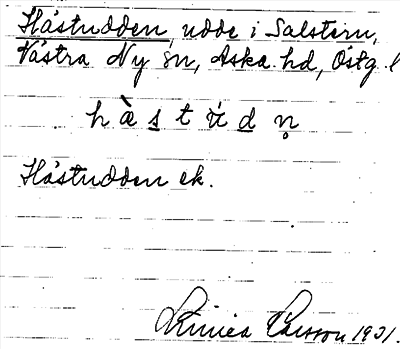 Hästudden, udde i Salstern,
Västra Ny sn, Aska hd, Östg. l
hàstúdn̥
Hästudden ek.
Linnea Larsson 1931.